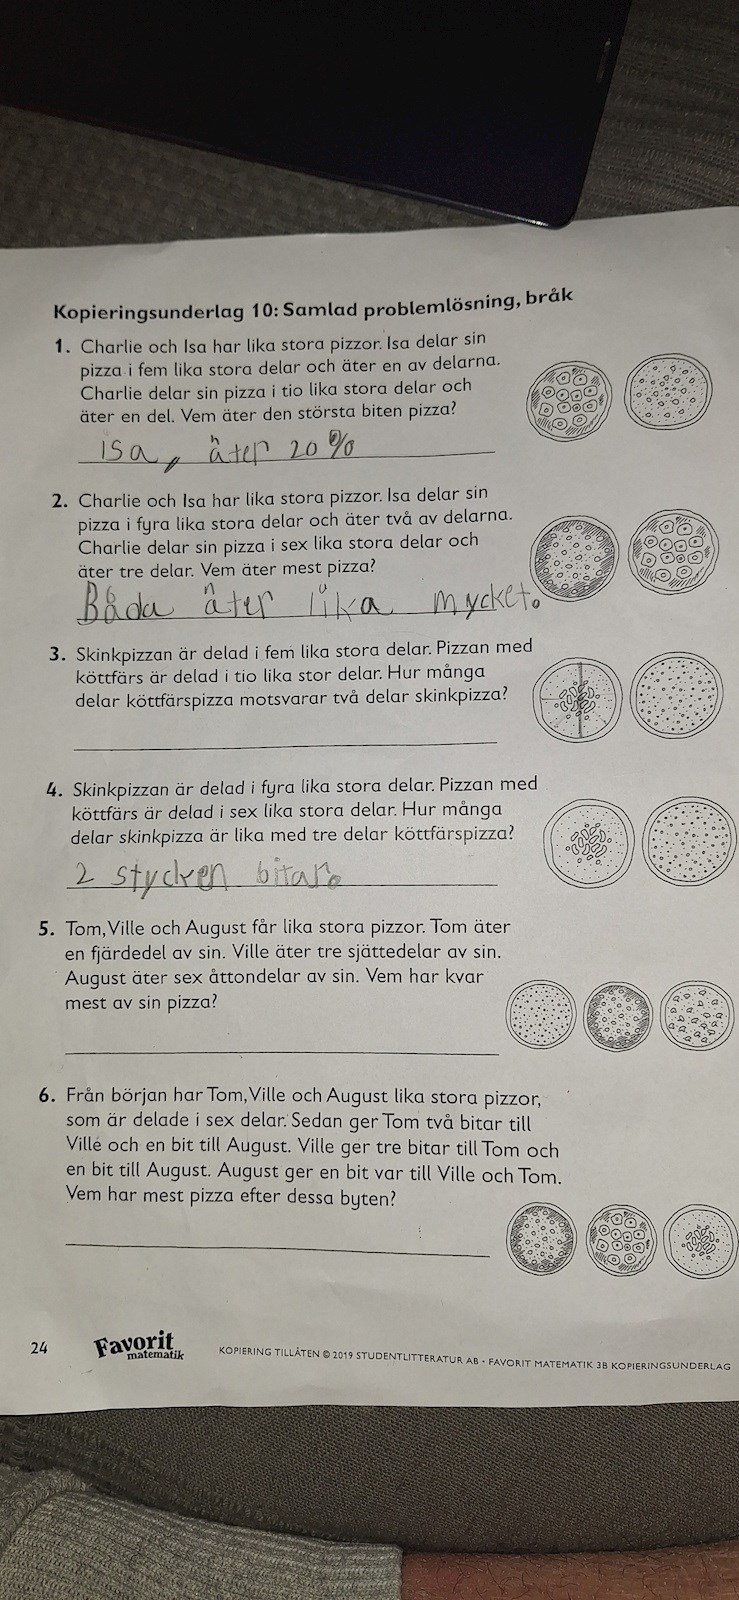 Kopieringsunderlag 10: Samlad problemlösning, bråk
1. Charlie och Isa har lika stora pizzor. Isa delar sin
pizza i fem lika stora delar och äter en av delarna.
Charlie delar sin pizza i tio lika stora delar och
äter en del. Vem äter den största biten pizza?
isa, äter 20%
2. Charlie och Isa har lika stora pizzor. Isa delar sin
pizza i fyra lika stora delar och äter två av delarna.
Charlie delar sin pizza i sex lika stora delar och
äter tre delar. Vem äter mest pizza?
Båda äter lika mycket.
3. Skinkpizzan är delad i fem lika stora delar. Pizzan med
köttfärs är delad i tio lika stor delar. Hur många
delar köttfärspizza motsvarar två delar skinkpizza?
4. Skinkpizzan är delad i fyra lika stora delar. Pizzan med
köttfärs är delad i sex lika stora delar. Hur många
delar skinkpizza är lika med tre delar köttfärspizza?
2 stycken bitar.
5. Tom, Ville och August får lika stora pizzor. Tom äter
en fjärdedel av sin. Ville äter tre sjättedelar av sin.
August äter sex åttondelar av sin. Vem har kvar
mest av sin pizza?
6. Från början har Tom, Ville och August lika stora pizzor,
som är delade i sex delar. Sedan ger Tom två bitar till
Ville och en bit till August. Ville ger tre bitar till Tom och
en bit till August. August ger en bit var till Ville och Tom.
Vem har mest pizza efter dessa byten?
24
Favorit
matematik
KOPIERING TILLÅTEN © 2019 STUDENTLITTERATUR AB • FAVORIT MATEMATIK 3B KOPIERINGSUNDERLAG